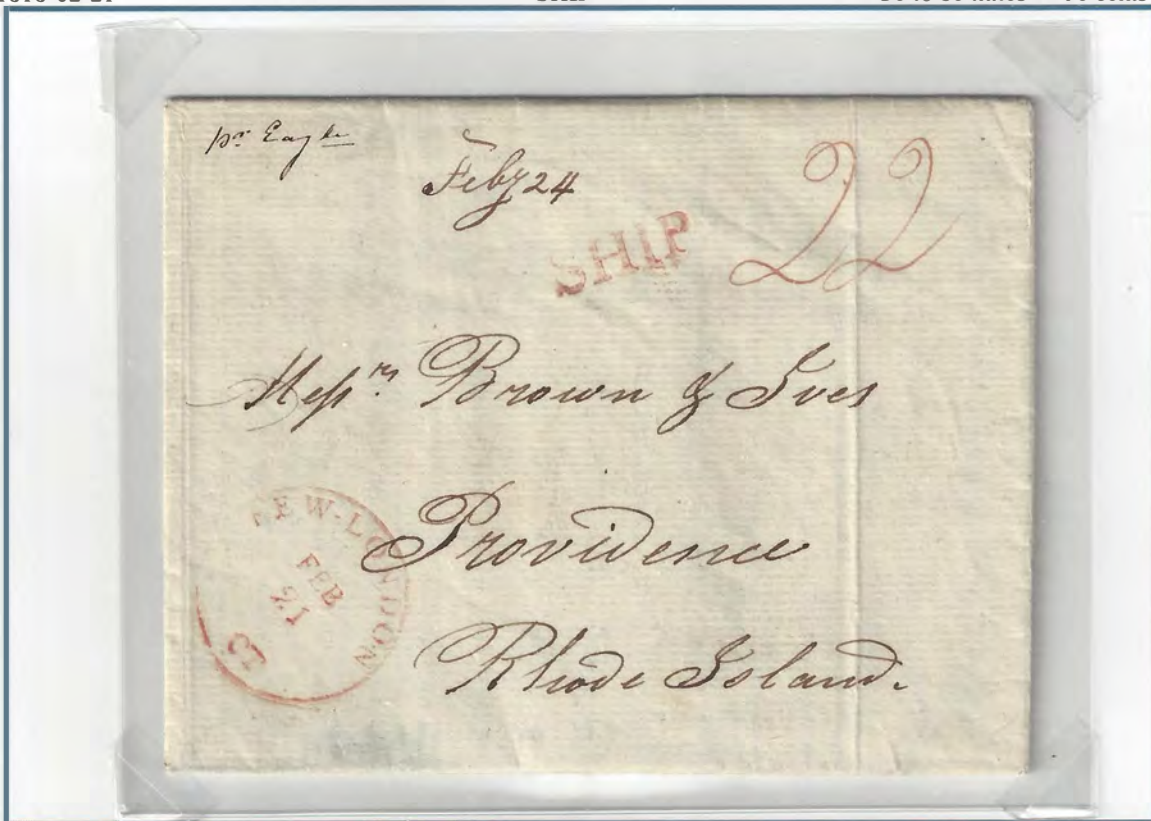 pr Eagle
Feby 24
SHIP
22
Messrs Brown & Ives
Providence
Rhode Island.
NEW-LONDON
FEB
21